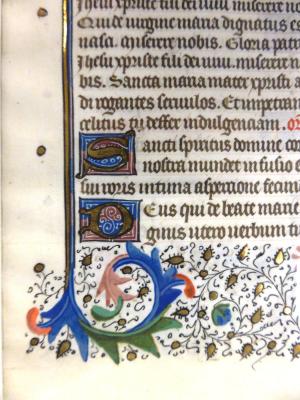 Jhesu xpriste fili dei vivi miserere n
Qui de virgine maria dignatus es
nasci. miserere nobis. Gloria patri
Jhesu xpriste fili dei vivi. miserere no
bis. Sancta maria mater xpristi a
di rogantes servulos. Et impetran
celitus tu deffer indulgenciam. or
Sancti spiritus domine cor
nostra mundet infusio
sui roris intima aspersione fecun
Deus qui de beate marie
ginis utero verbum tu